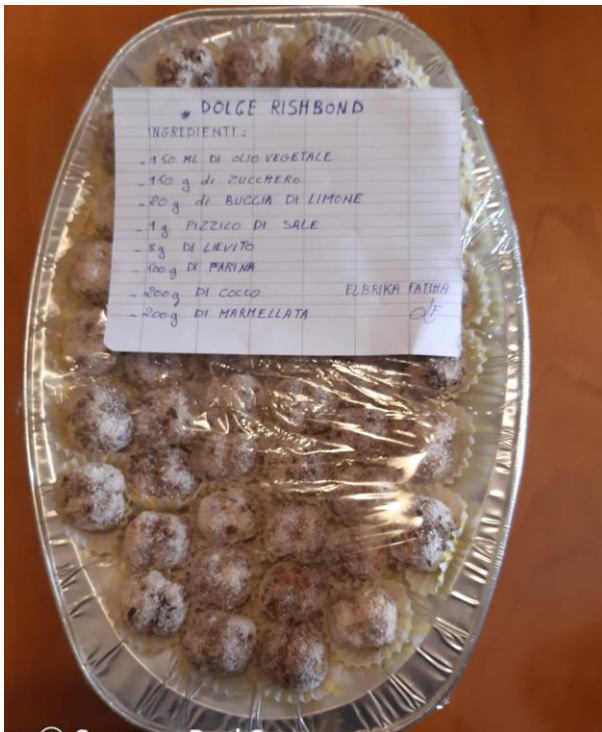 DOLCE RISHBOND
INGREDIENTI:
- 150 ML DI OLIO VEGETALE
- 150 g di ZUCCHERO
- 20 g di BUCCIA DI LIMONE
- 1 g PIZZICO DI SALE
- 8g DI LIEVITO
- 500g DI FARINA
- 200g DI COCCO
ELBRIKA FATIHA
- 200g DI MARMELLATA